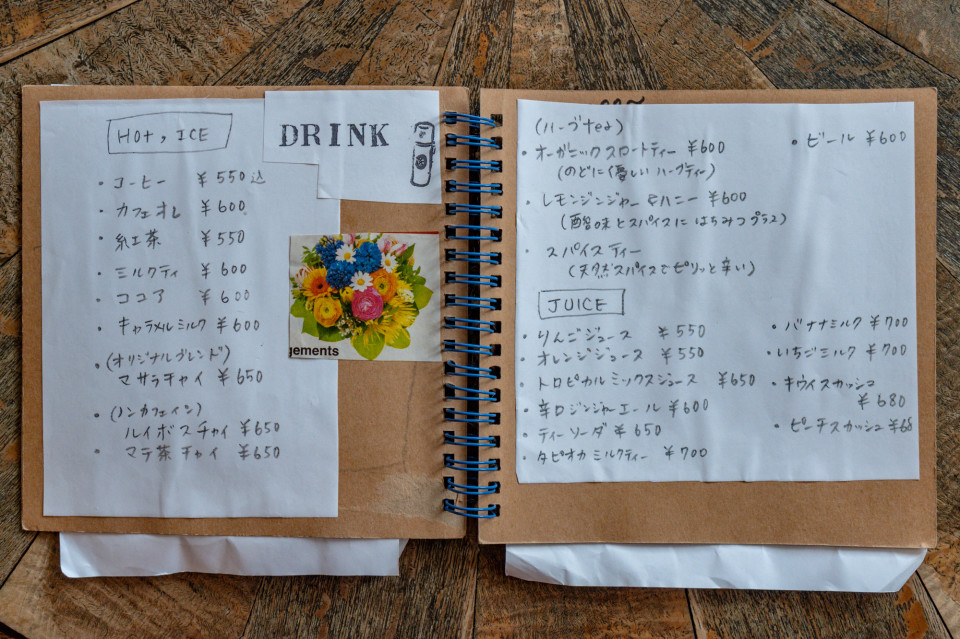 DRINK
HOt, ICE
・コーヒー ¥550込
・カフェオレ ¥600
・紅茶 ¥550
・ミルクティ ¥600
・ココア ¥600
・キャラメルミルク ¥600
・(オリジナルブレンド)
マサラチャイ ¥650
・(ノンカフェイン)
ルイボスチャイ ¥650
・マテ茶チャイ ¥650
gements
(ハーブtea)
・オーガニックスロートティー ¥600
(のどに優しいハーブティー)
・レモンジンジャー&ハニー ¥600
(酸味とスパイスにはちみつプラス)
・スパイスティー
(天然スパイスでピリッと辛い)
・ビール ¥600
JUICE
・りんごジュース ¥550
・オレンジジュース ¥550
・トロピカルミックスジュース ¥650
・辛口ジンジャーエール ¥600
・ティーソーダ ¥650
・タピオカミルクティー ¥700
・バナナミルク ¥700
・いちごミルク ¥700
・キウイスカッシュ
¥680
・ピーチスカッシュ